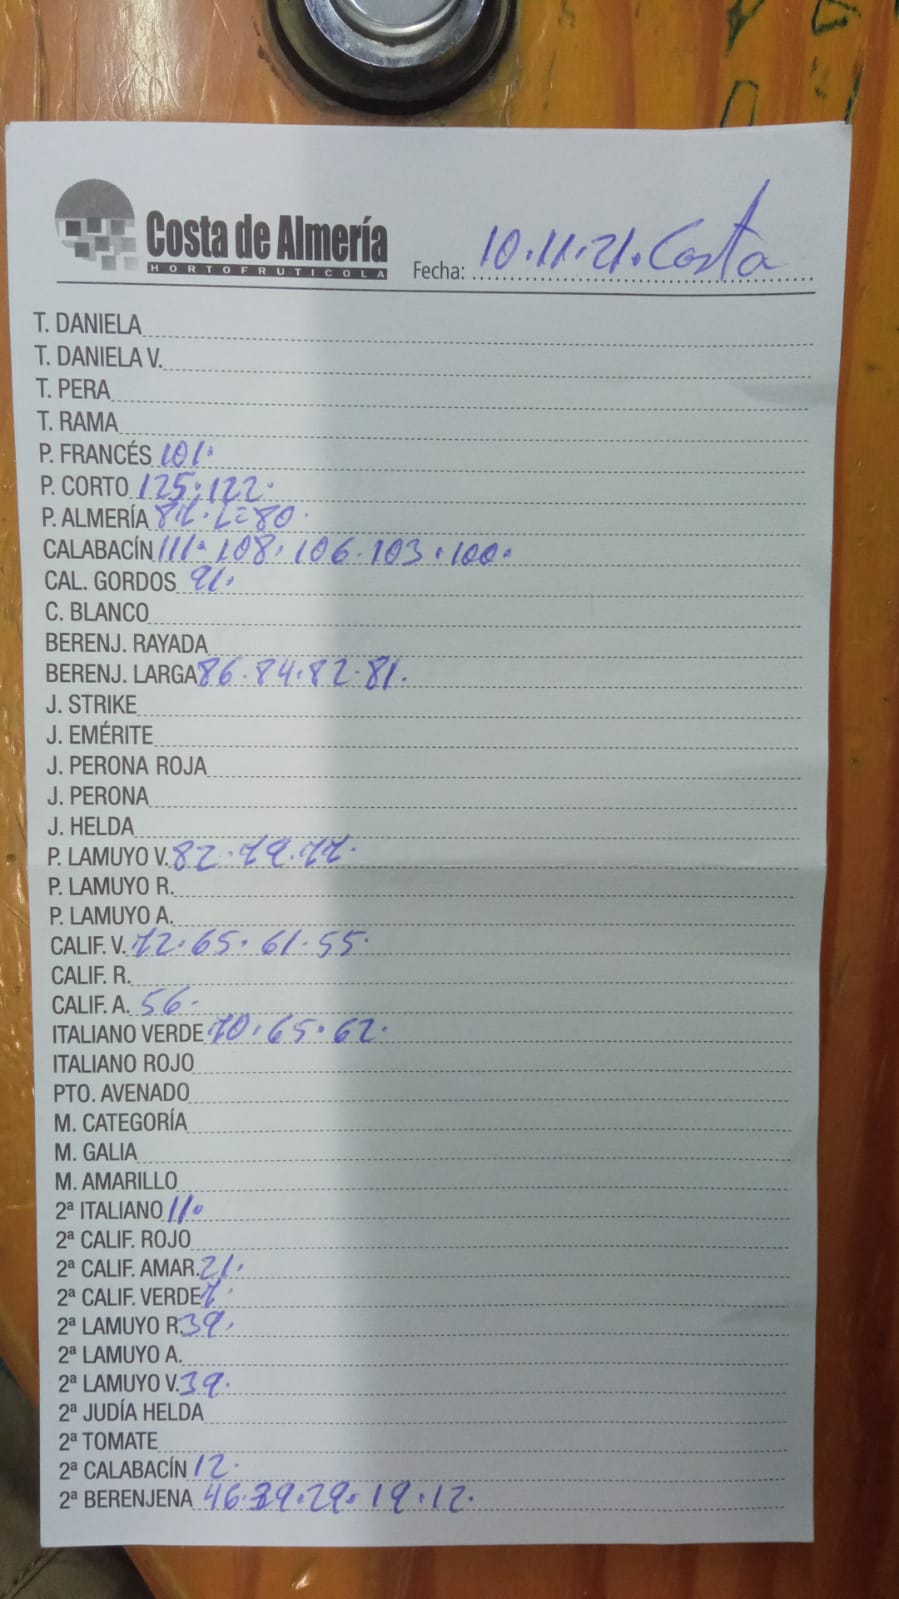 Costa de Almería
HORTOFRUTICOLA
Fecha: 10.11.21. Costa
T. DANIELA
T. DANIELA V.
T. PERA
T. RAMA
P. FRANCÉS 101.
P. CORTO 125.122.
P. ALMERÍA L=80.
CALABACÍN 111.108.106.103.100.
CAL. GORDOS 91.
C. BLANCO
BERENJ. RAYADA
BERENJ. LARGA 86.84.82.81.
J. STRIKE
J. EMÉRITE
J. PERONA ROJA
J. PERONA
J. HELDA
P. LAMUYO V. 82.79.77.
P. LAMUYO R.
P. LAMUYO A.
CALIF. V. 72.65.61.55.
CALIF. R.
CALIF. A. 56.
ITALIANO VERDE 70.65.62.
ITALIANO ROJO
PTO. AVENADO
M. CATEGORÍA
M. GALIA
M. AMARILLO
2ª ITALIANO 11.
2ª CALIF. ROJO
2ª CALIF. AMAR. 21.
2ª CALIF. VERDE 7.
2ª LAMUYO R. 39.
2ª LAMUYO A.
2ª LAMUYO V. 39.
2ª JUDÍA HELDA
2ª TOMATE
2ª CALABACÍN 12.
2ª BERENJENA 46.39.29.19.12.